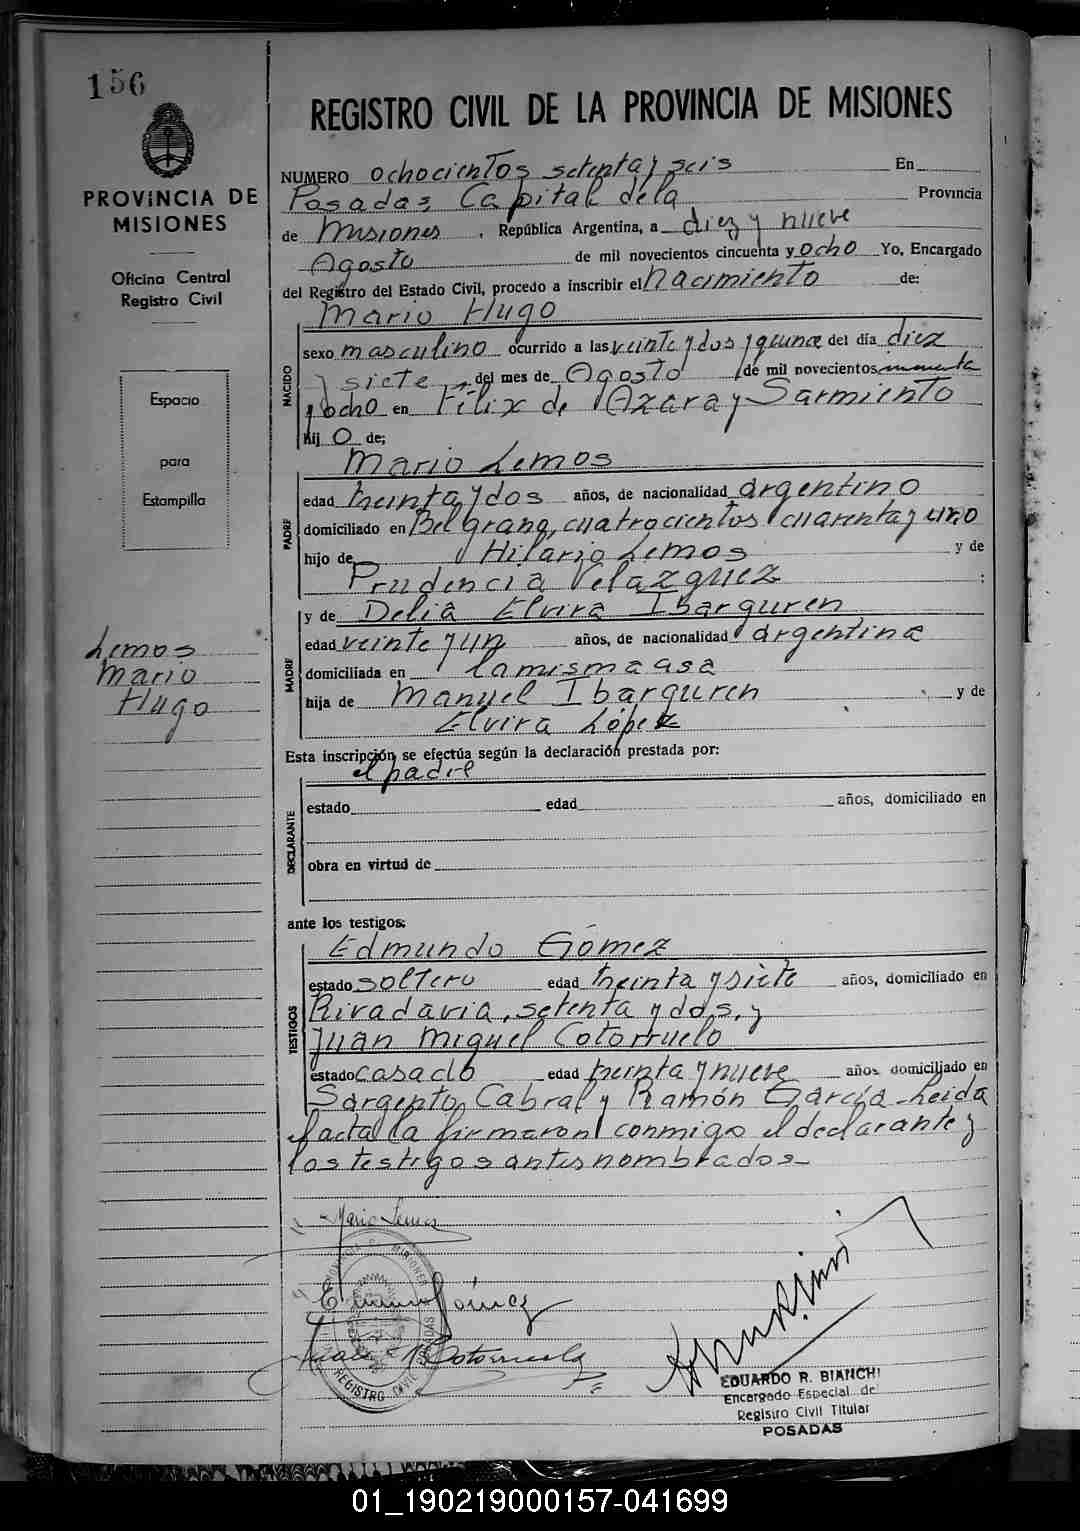 156
PROVINCIA DE
MISIONES
Oficina Central
Registro Civil
Espacio
para
Estampilla
Lemos
Mario
Hugo
REGISTRO CIVIL DE LA PROVINCIA DE MISIONES
NUMERO ochocientos setenta y seis En
Posadas, Capital de la Provincia
de Misiones, República Argentina, a diez y nueve
Agosto de mil novecientos cincuenta y ocho Yo, Encargado
del Registro del Estado Civil, procedo a inscribir el nacimiento de:
Mario Hugo
NACIDO
sexo masculino ocurrido a las veinte y dos y quince del día diez
y siete del mes de Agosto de mil novecientos
y ocho en Félix de Azara y Sarmiento
hij o de;
Mario Lemos
PADRE
edad treinta y dos años, de nacionalidad argentino
domiciliado en Belgrano, cuatrocientos cuarenta y uno
hijo de Hilario Lemos y de
Prudencia Velazquez ;
y de Delia Elvira Ibarguren
MADRE
edad veinte y un años, de nacionalidad argentina
domiciliada en la misma casa
hija de Manuel Ibarguren y de
Elvira López
Esta inscripción se efectúa según la declaración prestada por:
el padre
DECLARANTE
estado edad años, domiciliado en
obra en virtud de
ante los testigos:
Edmundo Gómez
TESTIGOS
estado soltero edad treinta y siete años, domiciliado en
Rivadavia, setenta y dos, y
Juan Miguel Cotorruelo
estado casado edad treinta y nueve años, domiciliado en
Sargento Cabral y Ramón García Leida
el acta la firmaron conmigo el declarante y
los testigos antes nombrados
Mario Lemos
PROVINCIA DE MISIONES
REGISTRO CIVIL POSADAS
E Gómez
Juan M Cotorruelo
EDUARDO R. BIANCHI
Encargado Especial del
Registro Civil Titular
POSADAS
01_190219000157-041699